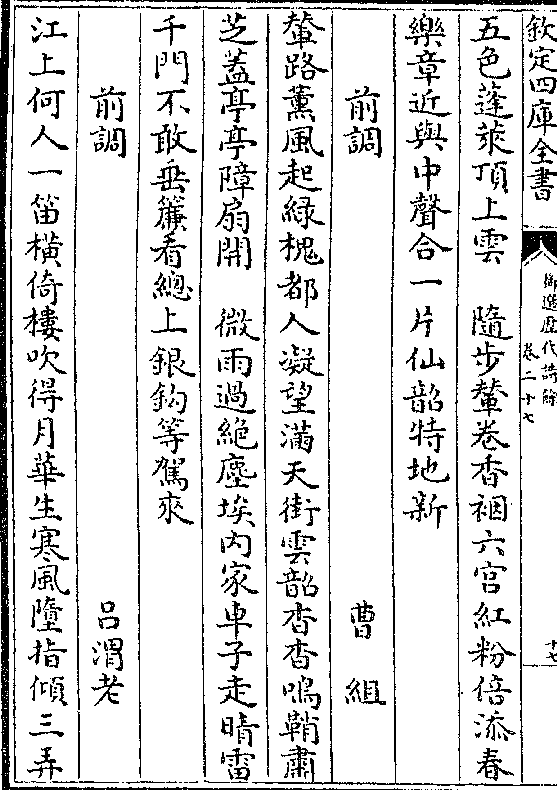 欽定四庫全書
御選歴代詩餘
卷二十七
十七
五色蓬萊頂上雲　隨步輦卷香裀六宫紅粉倍添春
樂章近與中聲合一片仙韶特地新
前調　曹組
輦路薰風起緑槐都人凝望滿天街雲韶杳杳鳴鞘肅
芝蓋亭亭障扇開　微雨過絶塵埃内家車子走晴雷
千門不敢垂簾看總上銀鈎等駕來
前調　吕渭老
江上何人一笛横倚樓吹得月華生寒風墮指傾三弄